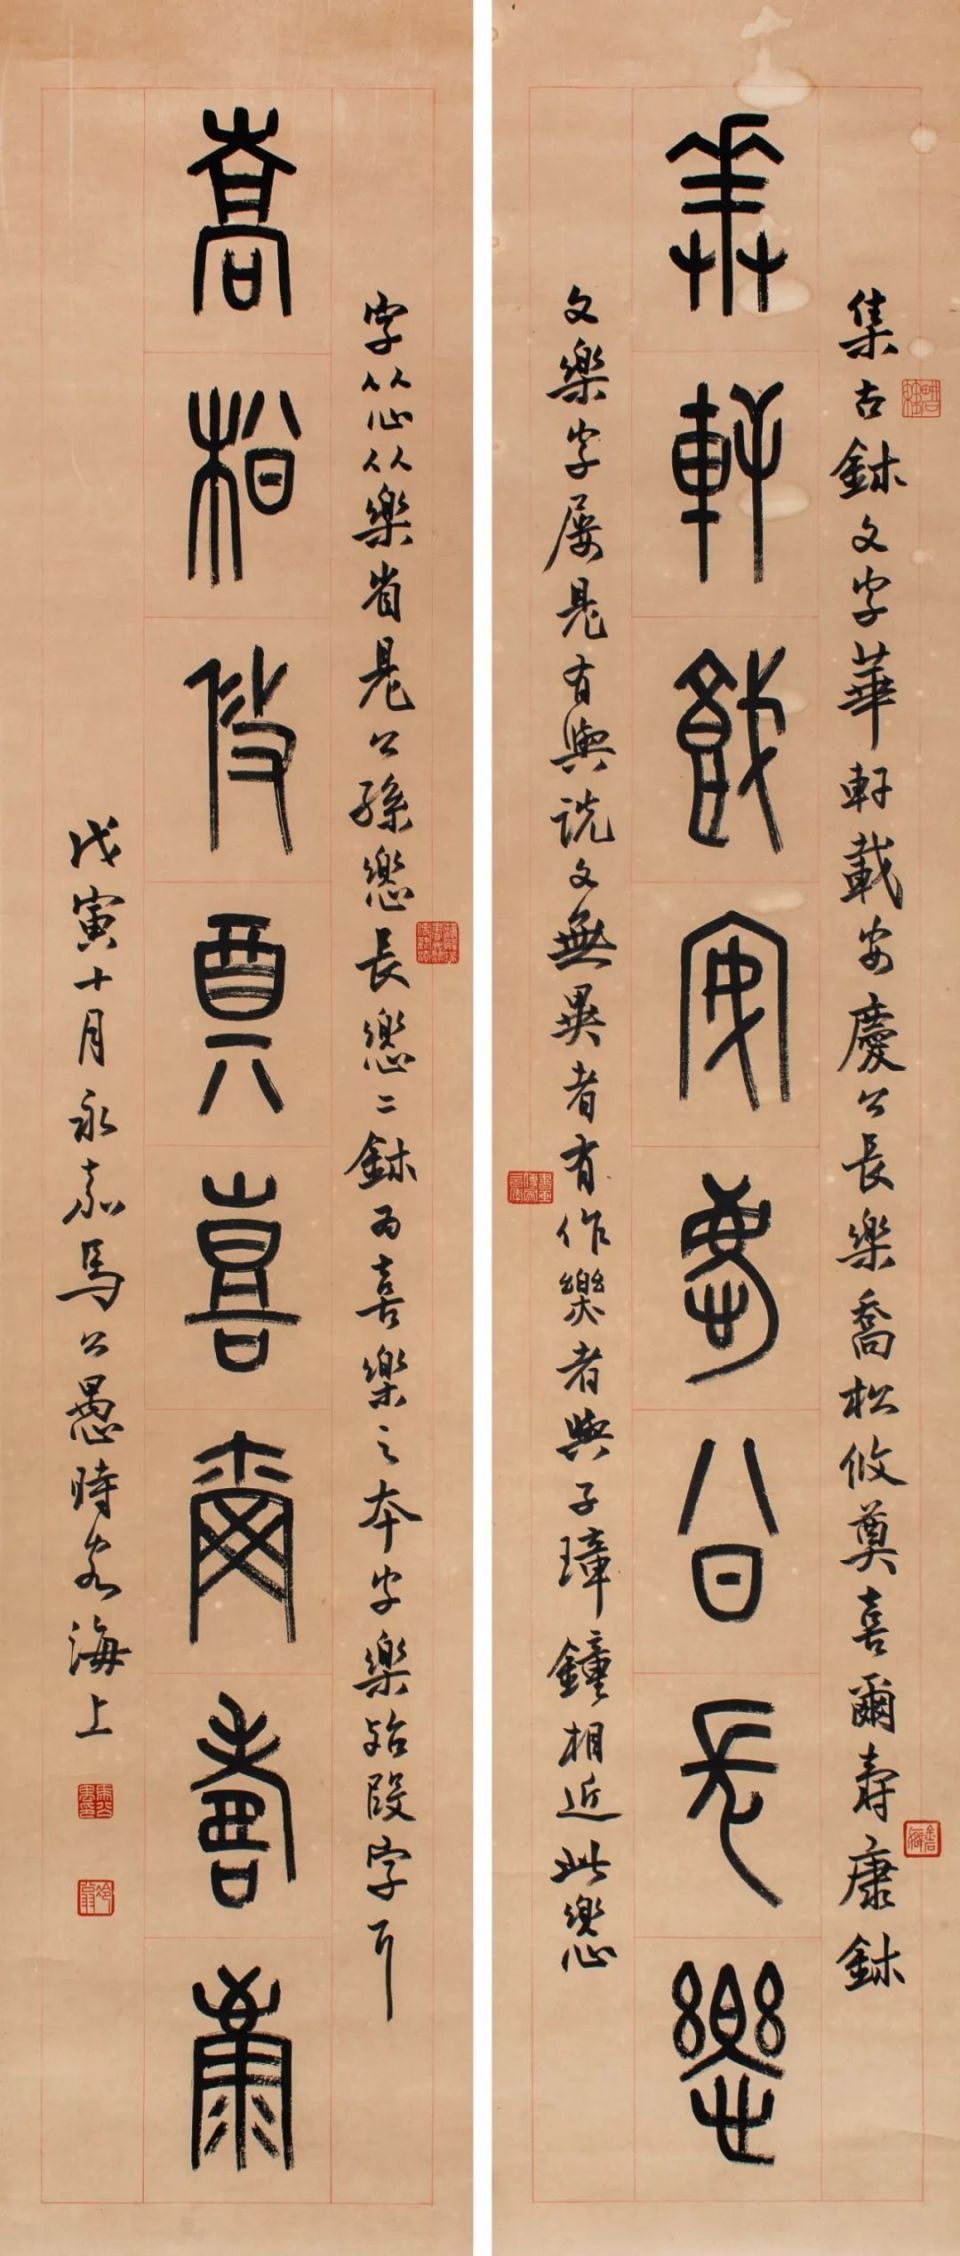 集古鉥文字華軒載安慶公長樂喬松攸奠喜爾壽康鉥
華軒載安慶公長樂
文樂字屢見有與說文無異者有作樂者與子璋鐘相近此㦡
字从心从樂省見公孫㦡長㦡二鉥為喜樂之本字樂始段字耳
喬松攸奠喜爾壽康
戊寅十月永嘉馬公愚時客海上